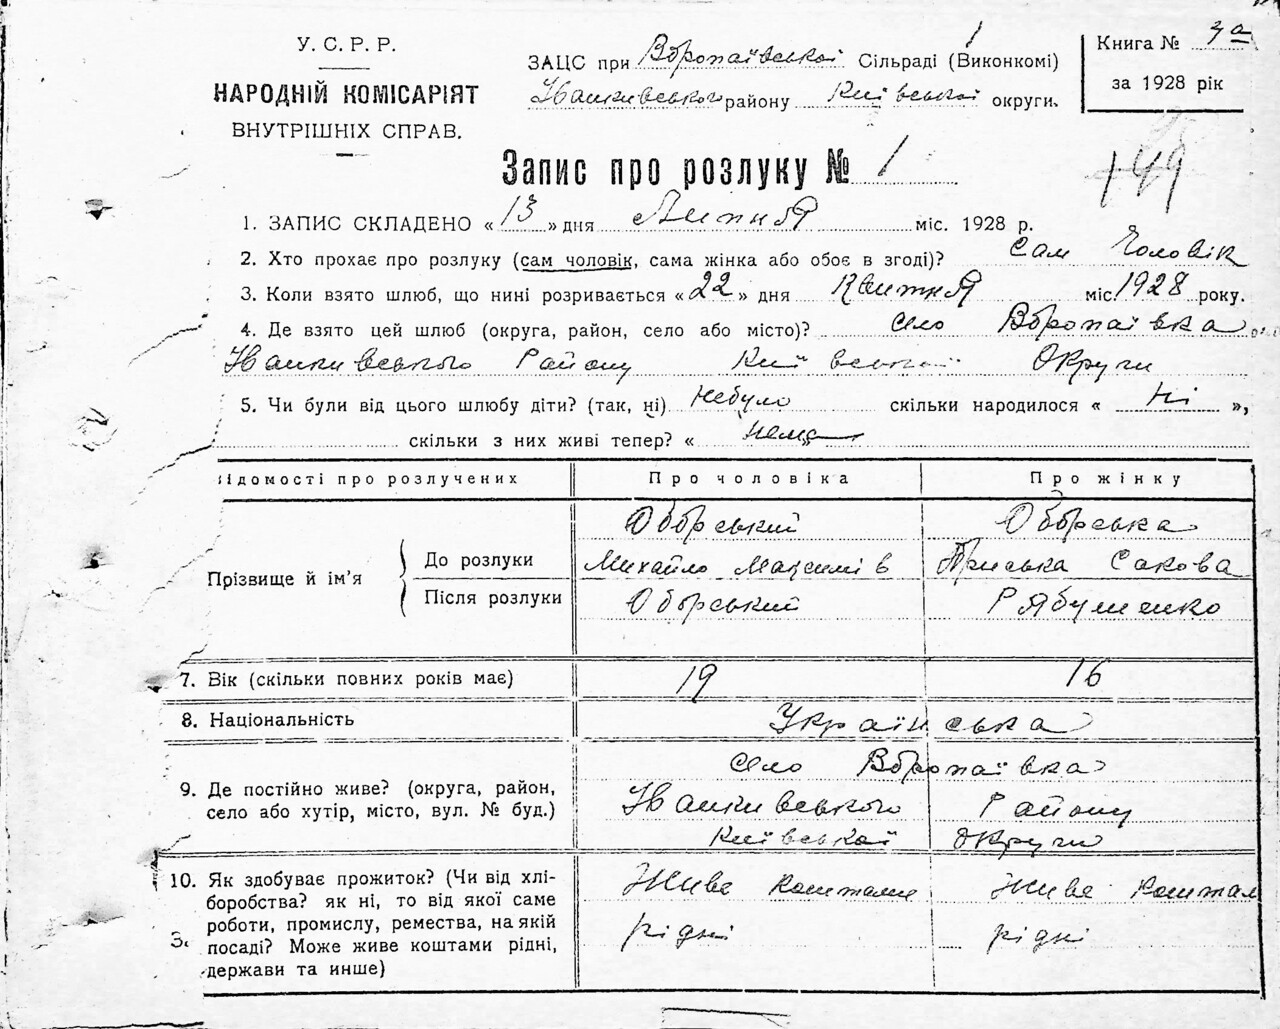 У. С. Р. Р.
НАРОДНІЙ КОМІСАРІЯТ
ВНУТРІШНІХ СПРАВ.
ЗАЦС при Воропаївської Сільраді (Виконкомі)
Іванкивського району Київської округи.
Книга № 3а
за 1928 рік
Запис про розлуку № 1
149
1. ЗАПИС СКЛАДЕНО «13» дня Липня міс. 1928 р.
2. Хто прохає про розлуку (сам чоловік, сама жінка або обоє в згоді)? Сам Чоловік
3. Коли взято шлюб, що нині розривається «22» дня Квитня міс 1928 року.
4. Де взято цей шлюб (округа, район, село або місто)? село Воропаївка
Іванкивського Району Київської Округи
5. Чи були від цього шлюбу діти? (так, ні) небуло скільки народилося « Ні »,
скільки з них живі тепер? « нема
ідомості про розлучених Про чоловіка Про жінку
Оборський Оборська
До розлуки Михайло Максимів Приська Сакова
Прізвище й ім’я
Після розлуки Оборський Рябушенко
7. Вік (скільки повних років має) 19 16
8. Національність Українська
село Воропаївка
9. Де постійно живе? (округа, район, Іванкивського Району
село або хутір, місто, вул. № буд.)
Київської округи
10. Як здобуває прожиток? (Чи від хлі- Живе коштами Живе коштам
боробства? як ні, то від якої саме
роботи, промислу, ремества, на якій рідні рідні
посаді? Може живе коштами рідні,
держави та инше)